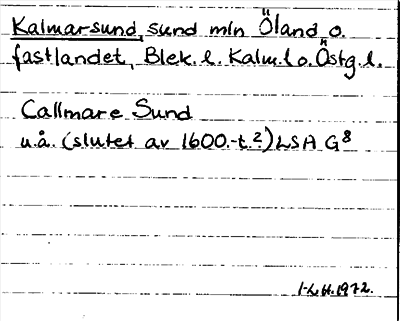 Kalmarsund, sund mln Öland o.
fastlandet, Blek. l. Kalm. l o. Östg. l.
Callmare Sund
u.å. (slutet av 1600.-t.?) LSA G8
1972.